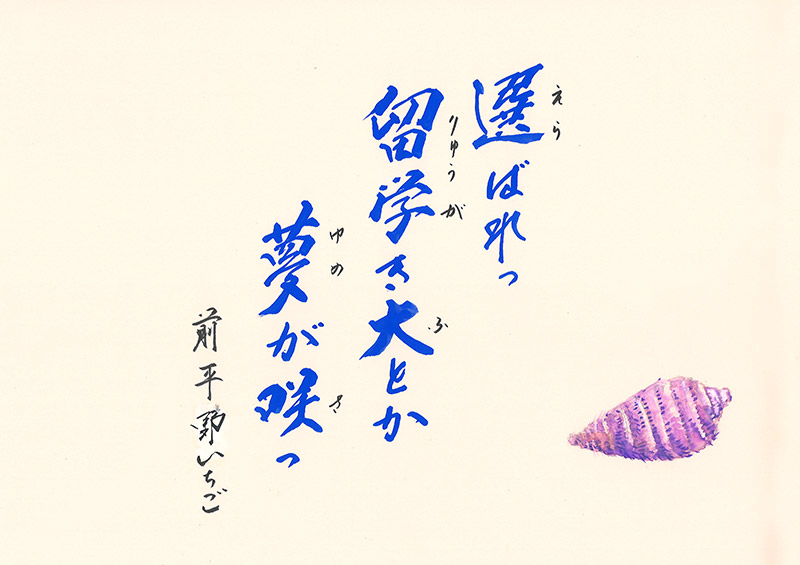 えら
選ばれっ
りゅうが ふ
留学き大とか
ゆめ さ
夢が咲っ
前平野いちご